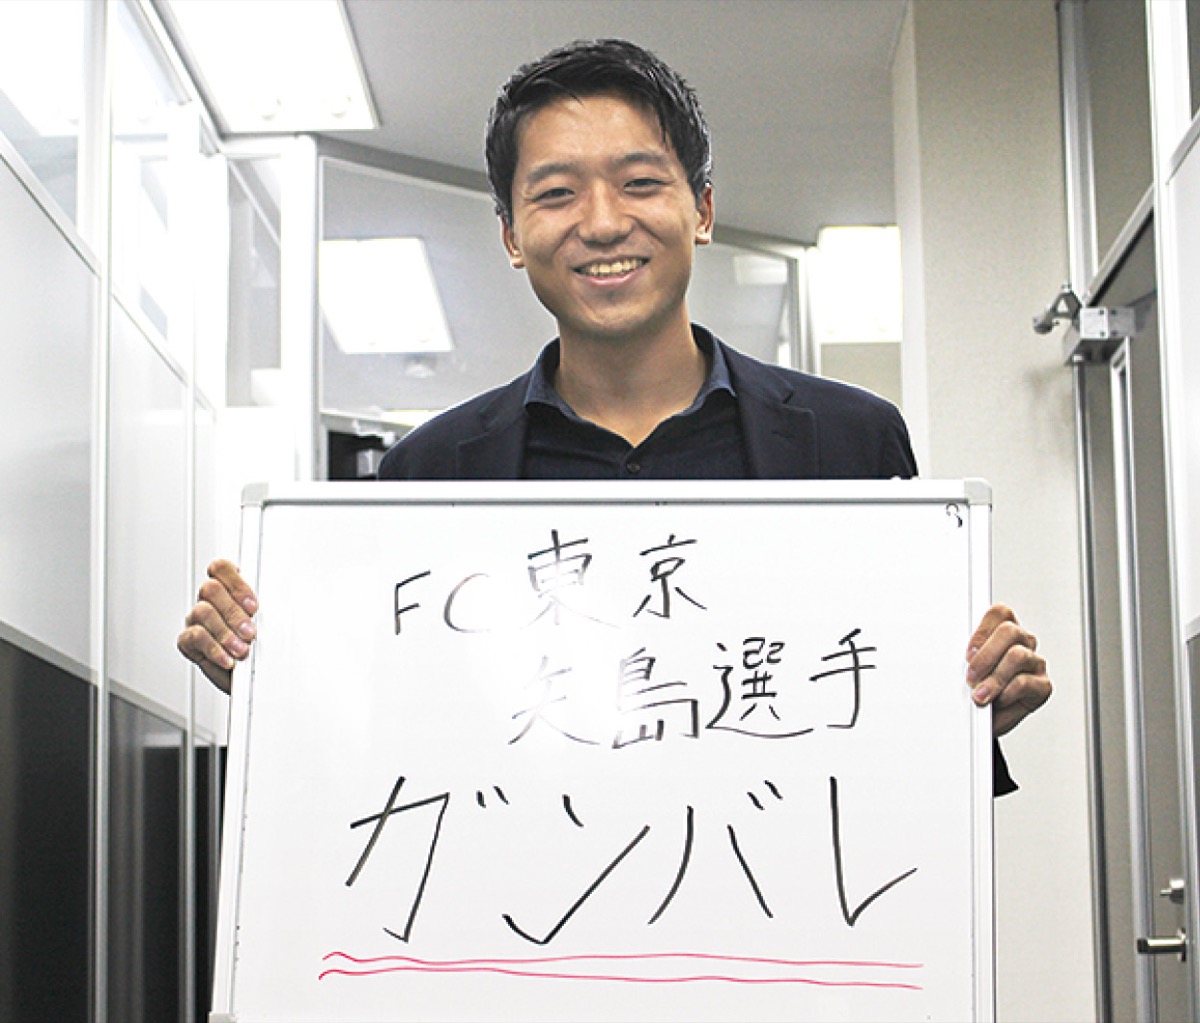 FC東京
矢島選手
ガンバレ